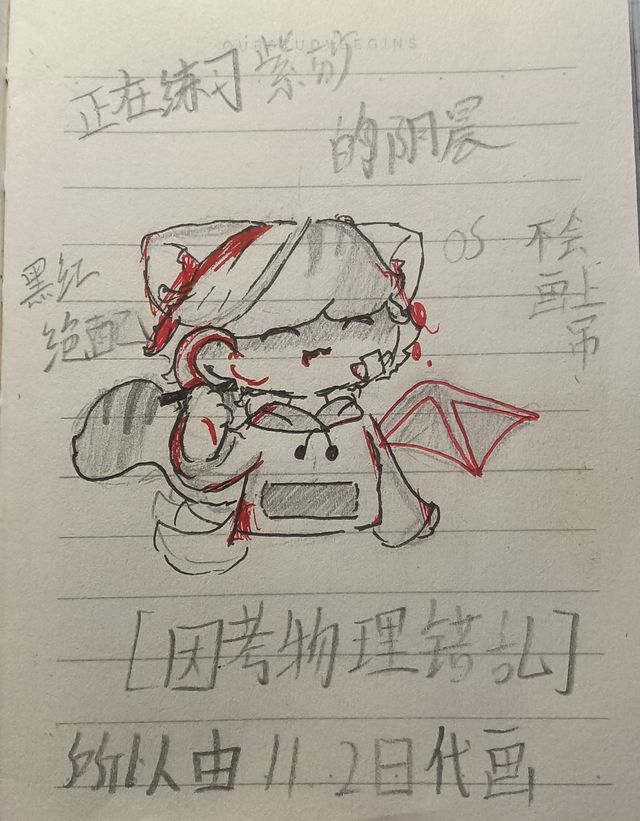 OUR STUDY BEGINS
正在练习紫汾
的阴晨
OS
不会
画上
吊
黑红
绝配
[因考物理错乱]
所以由11.2日代画